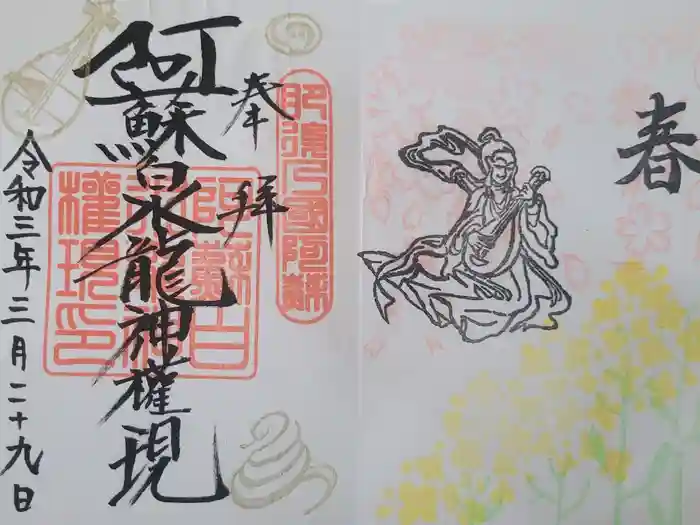 春
奉拝
肥後乃國阿蘇
阿蘇白水龍神權現
阿蘇白水龍神權現印
令和三年三月二十九日